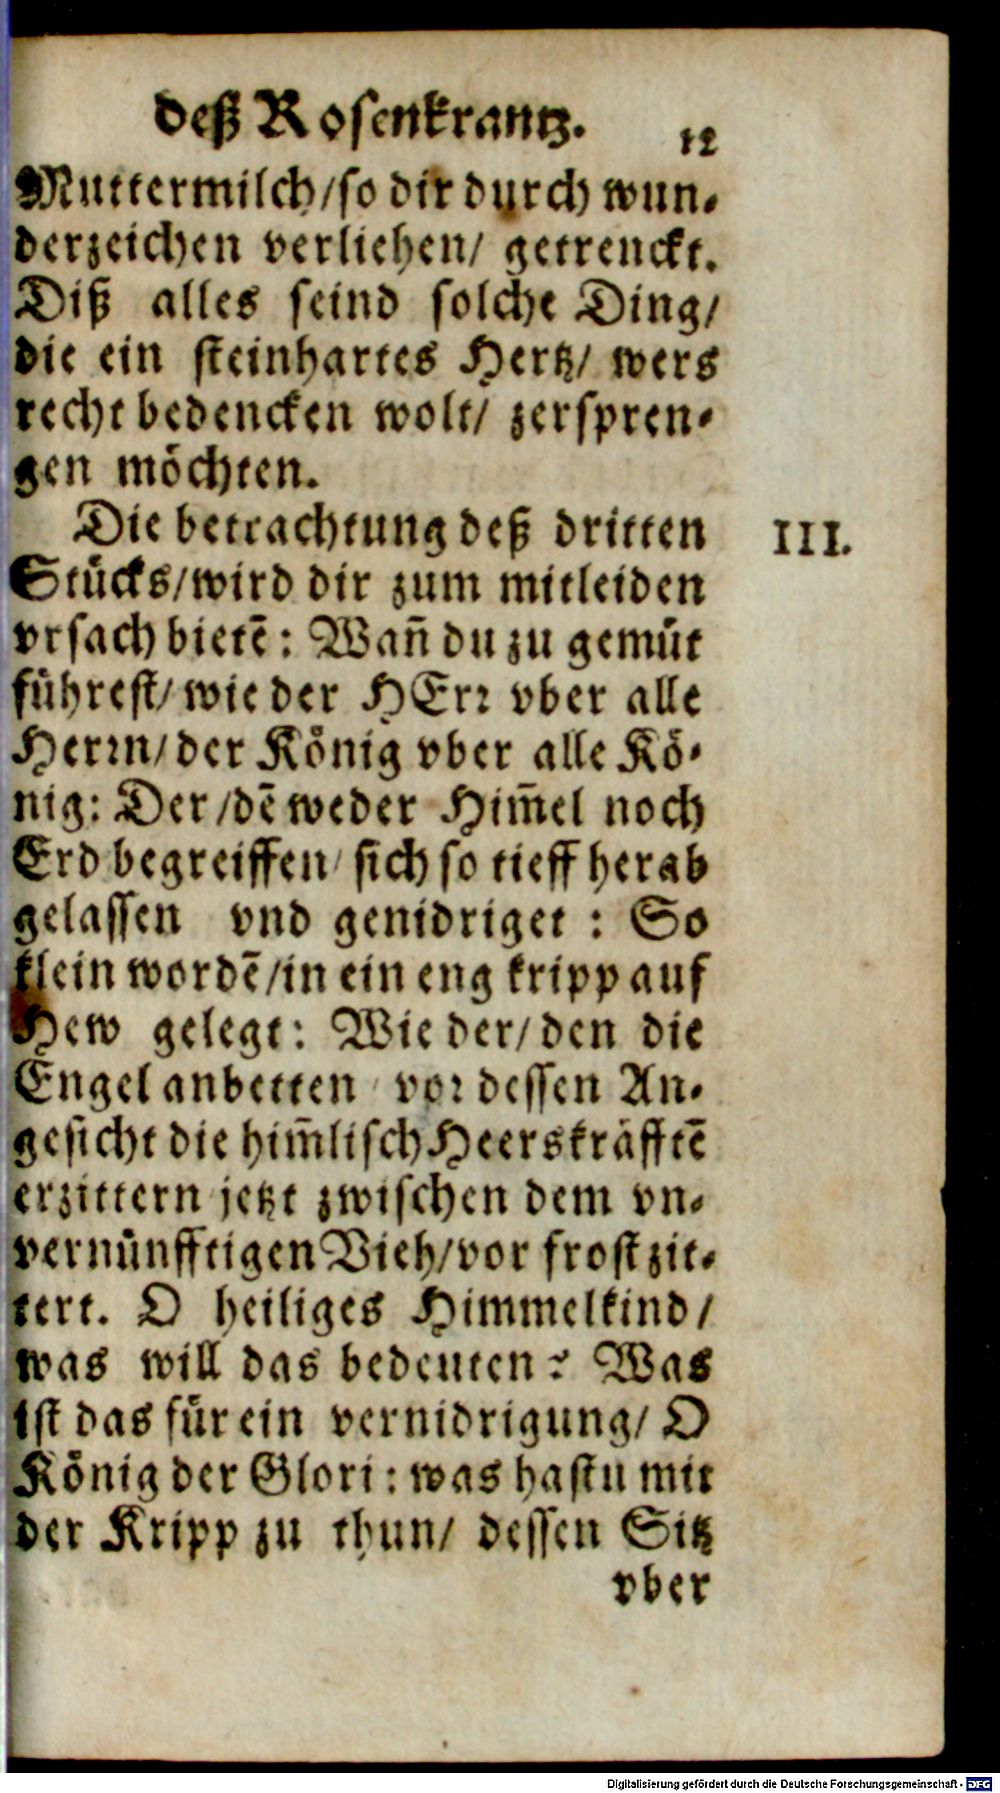 deß Rosenkrantz.
12
Muttermilch/so dir durch wun-
derzeichen verliehen/ getrenckt.
Diß alles seind solche Ding/
die ein steinhartes Hertz/ wers
recht bedencken wolt/ zerspren-
gen möchten.
Die betrachtung deß dritten
III.
Stücks/wird dir zum mitleiden
vrsach bietē: Wañ du zu gemüt
führest/ wie der HErr vber alle
Herrn/der König vber alle Kö-
nig: Der/dē weder Him̄el noch
Erd begreiffen/ sich so tieff herab
gelassen vnd genidriget: So
klein wordē/in ein eng kripp auf
Hew gelegt: Wie der/den die
Engel anbetten/ vor dessen An-
gesicht die him̄lisch Heerskräfftē
erzittern jetzt zwischen dem vn-
vernünfftigen Vieh/vor frost zit-
tert. O heiliges Himmelkind/
was will das bedeuten? Was
ist das für ein vernidrigung/ O
König der Glori: was hastu mit
der Kripp zu thun/ dessen Sitz
vber
Digitalisierung gefördert durch die Deutsche Forschungsgemeinschaft - DFG